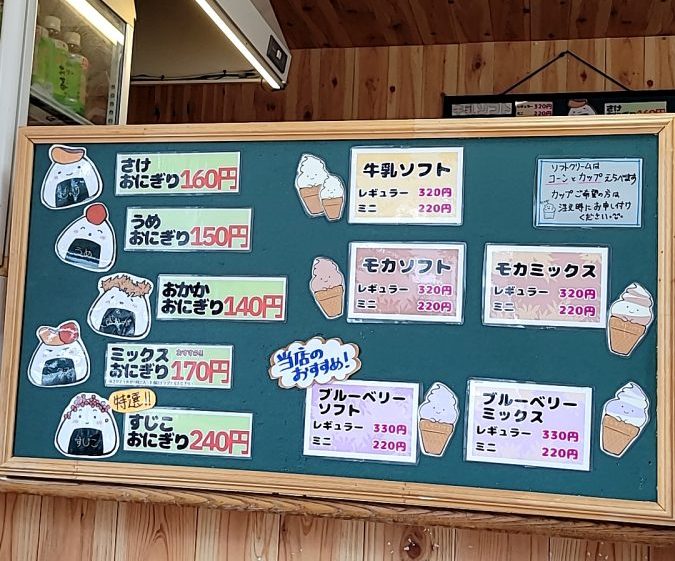 さけ
おにぎり160円
うめ
おにぎり150円
うめ
おかか
おにぎり140円
ミックス おすすめ!!
おにぎり170円
特選!!
すじこ
おにぎり240円
すじこ
牛乳ソフト
レギュラー 320円
ミニ 220円
モカソフト
レギュラー 320円
ミニ 220円
モカミックス
レギュラー 320円
ミニ 220円
当店の
おすすめ!
ブルーベリー
ソフト
レギュラー 330円
ミニ 220円
ブルーベリー
ミックス
レギュラー 330円
ミニ 220円
ソフトクリームは
コーンとカップえらべます
カップご希望の方は
注文時にお申し付け
ください
320円
220円
さけ